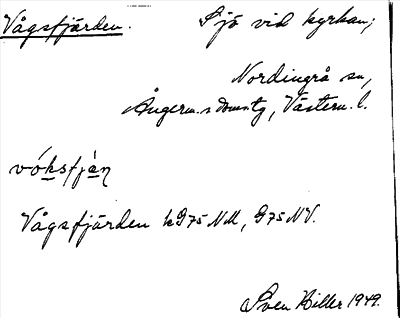 Vågsfjärden. Sjö vid kyrkan;
Nordingrå sn,
Ångerm. s domsg, Västern. l.
vó̱ksfjá̱ṇ
Vågsfjärden k 975 NM, 975 NV.
Sven Hiller 1949.